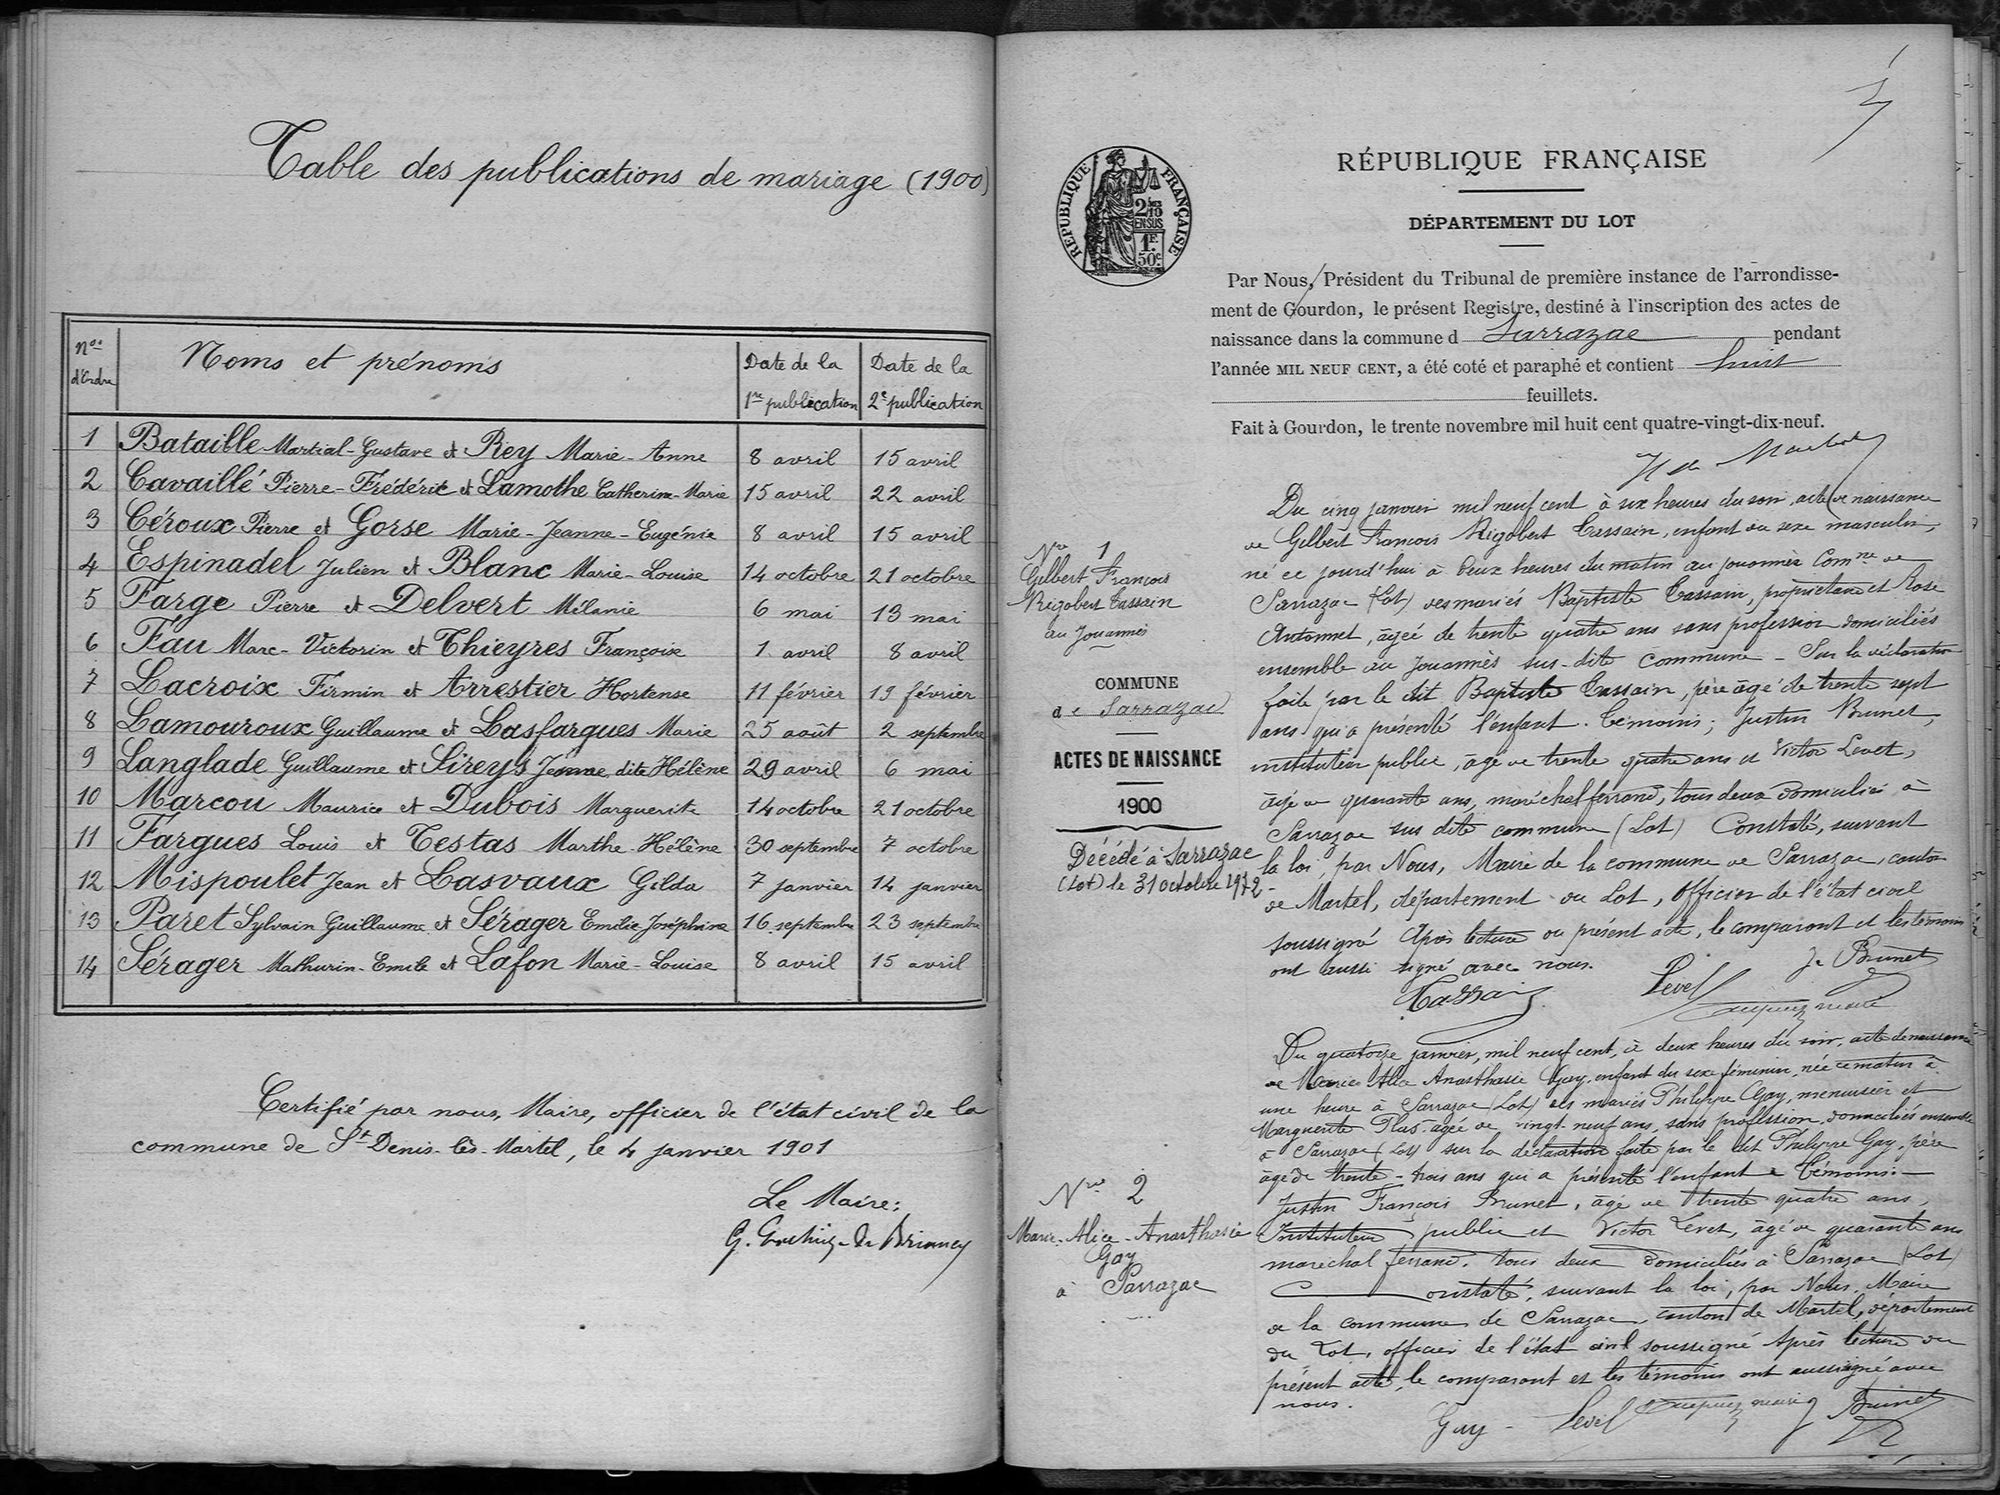 Table des publications de mariage (1900)
Nos d'Ordre
Noms et prénoms
Date de la 1re publication
Date de la 2e publication
1 Bataille Martial-Gustave et Rey Marie-Anne 8 avril 15 avril
2 Cavaillé Pierre-Frédéric et Lamothe Catherine-Marie 15 avril 22 avril
3 Céroux Pierre et Gorse Marie-Jeanne-Eugénie 8 avril 15 avril
4 Espinadel Julien et Blanc Marie-Louise 14 octobre 21 octobre
5 Farge Pierre et Delvert Mélanie 6 mai 13 mai
6 Fau Marc-Victorin et Thieyres Françoise 1 avril 8 avril
7 Lacroix Firmin et Arrestier Hortense 11 février 19 février
8 Lamouroux Guillaume et Lasfargues Marie 25 août 2 septembre
9 Langlade Guillaume et Sireys Jeanne dite Hélène 29 avril 6 mai
10 Marcou Maurice et Dubois Marguerite 14 octobre 21 octobre
11 Fargues Louis et Testas Marthe-Hélène 30 septembre 7 octobre
12 Mispoulet Jean et Lasvaux Gilda 7 janvier 14 janvier
13 Paret Sylvain Guillaume et Sérager Emilie Joséphine 16 septembre 23 septembre
14 Sérager Mathurin-Emile et Lafon Marie-Louise 8 avril 15 avril
Certifié par nous, Maire, officier de l'état civil de la
commune de St Denis-lès-Martel, le 4 janvier 1901
Le Maire:
RÉPUBLIQUE FRANÇAISE
2/10 EN SUS
1F. 50c.
RÉPUBLIQUE FRANÇAISE
DÉPARTEMENT DU LOT
Par Nous, Président du Tribunal de première instance de l'arrondisse-
ment de Gourdon, le présent Registre, destiné à l'inscription des actes de
naissance dans la commune d Sarrazac pendant
l'année MIL NEUF CENT, a été coté et paraphé et contient huit
feuillets.
Fait à Gourdon, le trente novembre mil huit cent quatre-vingt-dix-neuf.
No 1
Gilbert François
Rigobert Tassain
au Jouannès
COMMUNE
de Sarrazac
ACTES DE NAISSANCE
1900
Décédé à Sarrazac
(Lot) le 31 octobre 1972
Du cinq janvier mil neuf cent à six heures du soir, acte de naissance
de Gilbert François Rigobert Tassain, enfant du sexe masculin,
né ce jourd'hui à deux heures du matin au jouannès Comne de
Sarrazac (Lot) des mariés Baptiste Tassain, propriétaire et Rose
Antonnet, âgée de trente quatre ans sans profession domiciliés
ensemble au Jouannès sus-dite commune - Sur la déclaration
faite par le dit Baptiste Tassain, père âgé de trente sept
ans qui a présenté l'enfant. Témoins; Justin Brunet,
instituteur public, âgé de trente quatre ans et Victor Levet,
âgé de quarante ans, maréchal ferrand, tous deux domiciliés à
Sarrazac sus dite commune (Lot) Constaté, suivant
la loi, par Nous, Maire de la commune de Sarrazac, canton
de Martel, département du Lot, officier de l'état civil
soussigné Après lecture du présent acte, le comparant et les témoins
ont aussi signé avec nous.
Tassain Level J. Brunet
No 2
Marie-Alice-Anasthasie
Gay
à Sarrazac
Du quatorze janvier, mil neuf cent, à deux heures du soir, acte de naissance
de Marie Alice Anasthasie Gay, enfant du sexe féminin, née ce matin à
une heure à Sarrazac (Lot) des mariés Philippe Gay, menuisier et
Marguerite Plas âgée de vingt-neuf ans, sans profession, domiciliés ensemble
à Sarrazac (Lot) sur la déclaration faite par le dit Philippe Gay, père
âgé de trente-trois ans qui a présenté l'enfant Témoins:-
Justin François Brunet, âgé de trente quatre ans,
Instituteur public et Victor Levet, âgé de quarante ans
maréchal ferrand. tous deux domiciliés à Sarrazac (Lot)
Constaté, suivant la loi, par Nous, Maire
de la commune de Sarrazac, canton de Martel, département
du Lot, officier de l'état civil soussigné Après lecture du
présent acte, le comparant et les témoins ont aussi signé avec
nous.
Gay - Level Brunet